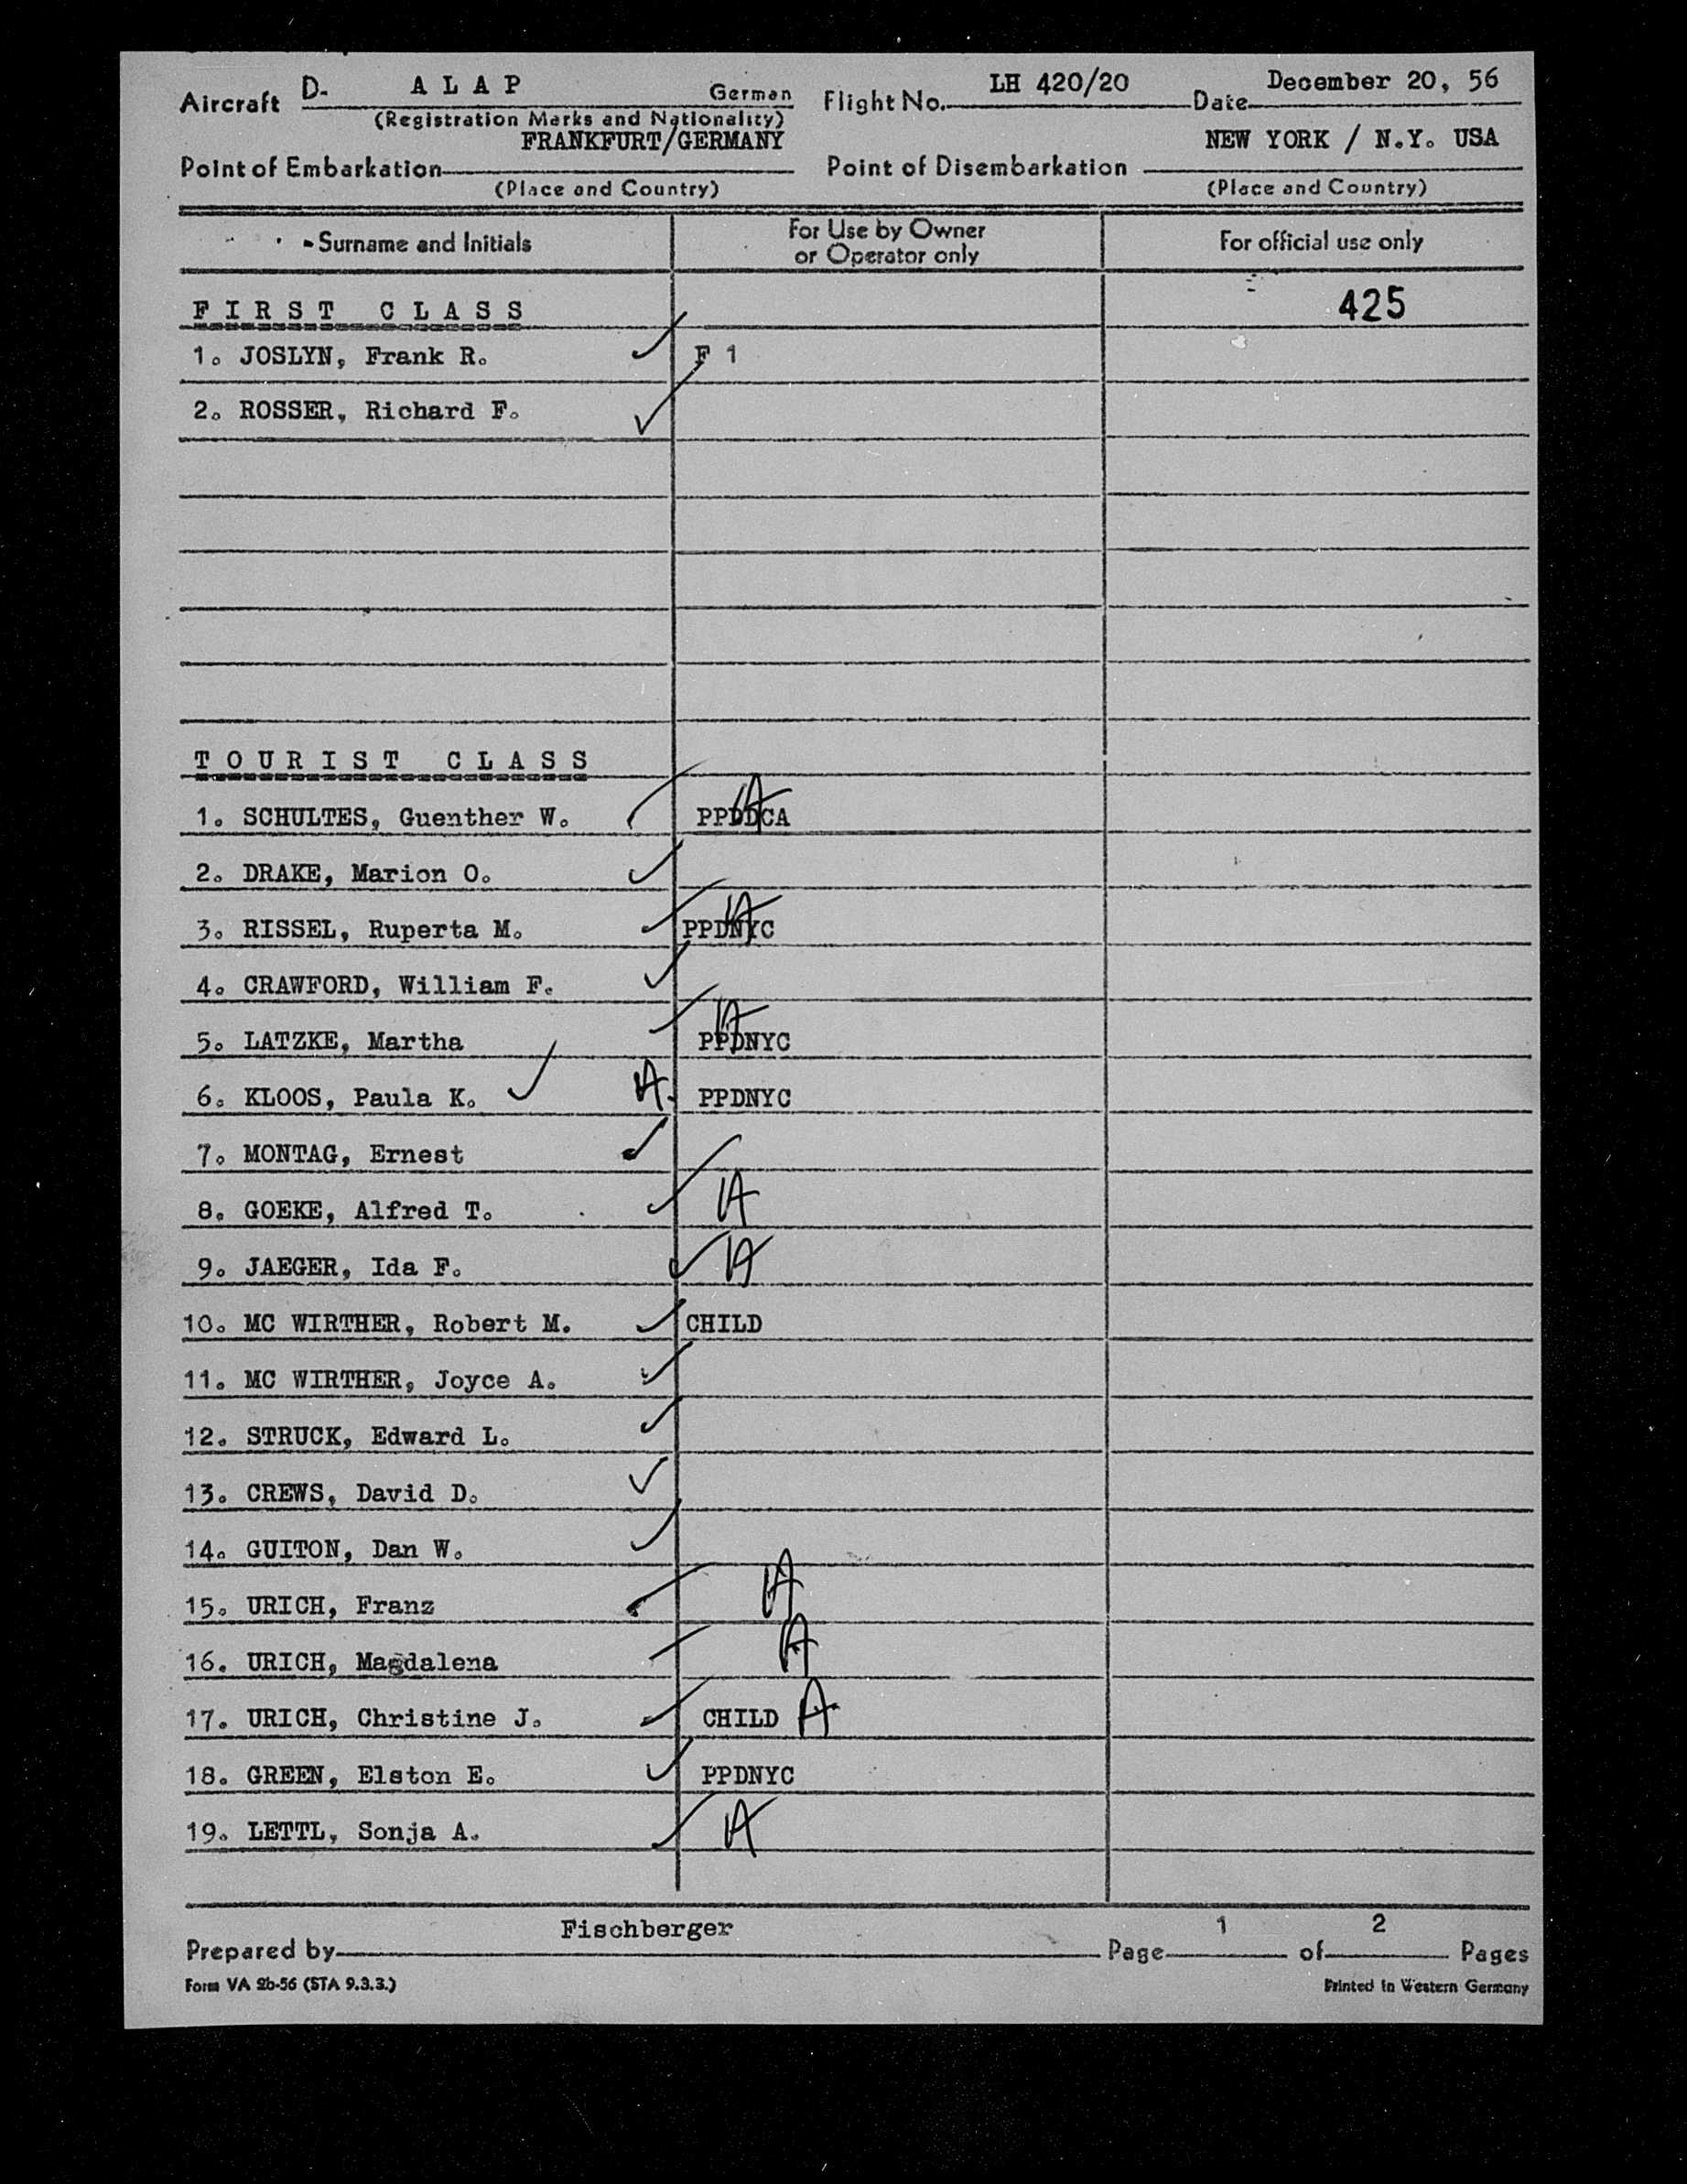 Aircraft D- A L A P German Flight No. LH 420/20 Date December 20, 56
(Registration Marks and Nationality)
FRANKFURT/GERMANY NEW YORK / N.Y. USA
Point of Embarkation Point of Disembarkation
(Place and Country) (Place and Country)
Surname and Initials For Use by Owner or Operator only For official use only
F I R S T C L A S S 425
1. JOSLYN, Frank R. ✓ F 1
2. ROSSER, Richard F. ✓
T O U R I S T C L A S S
1. SCHULTES, Guenther W. ✓ PPDDCA A
2. DRAKE, Marion O. ✓
3. RISSEL, Ruperta M. ✓ PPDNYC A
4. CRAWFORD, William F. ✓
5. LATZKE, Martha ✓ PPDNYC A
6. KLOOS, Paula K. ✓ A PPDNYC
7. MONTAG, Ernest ✓
8. GOEKE, Alfred T. ✓ A
9. JAEGER, Ida F. ✓ A
10. MC WIRTHER, Robert M. ✓ CHILD
11. MC WIRTHER, Joyce A. ✓
12. STRUCK, Edward L. ✓
13. CREWS, David D. ✓
14. GUITON, Dan W. ✓
15. URICH, Franz ✓ A
16. URICH, Magdalena ✓ A
17. URICH, Christine J. ✓ CHILD A
18. GREEN, Elston E. ✓ PPDNYC
19. LETTL, Sonja A. ✓ A
Prepared by Fischberger Page 1 of 2 Pages
Form VA 2b-56 (STA 9.3.3.) Printed in Western Germany